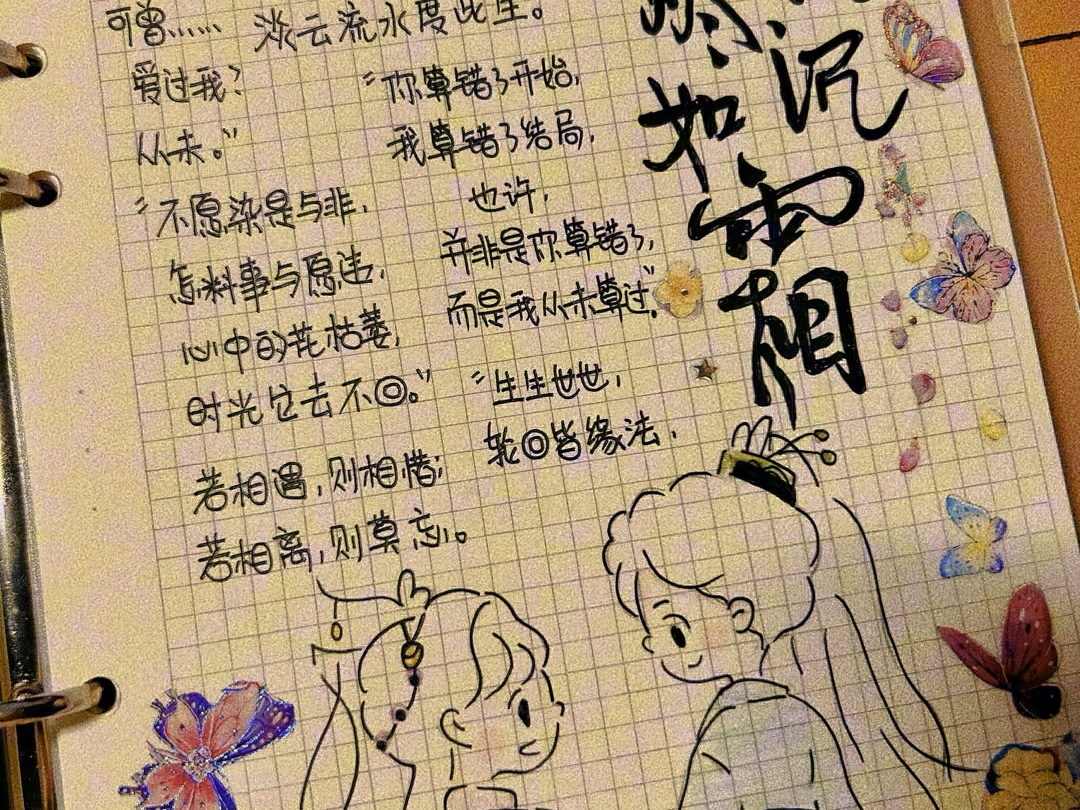 可曾……
爱过我？
从未。”
“不愿染是与非，
怎料事与愿违，
心中的花枯萎，
时光它去不回。”
若相遇，则相惜；
若相离，则莫忘。
淡云流水度此生。
“你算错了开始，
我算错了结局，
也许，
并非是你算错了，
而是我从未算过。”
“生生世世，
轮回皆缘法，
沉
如
霜
相